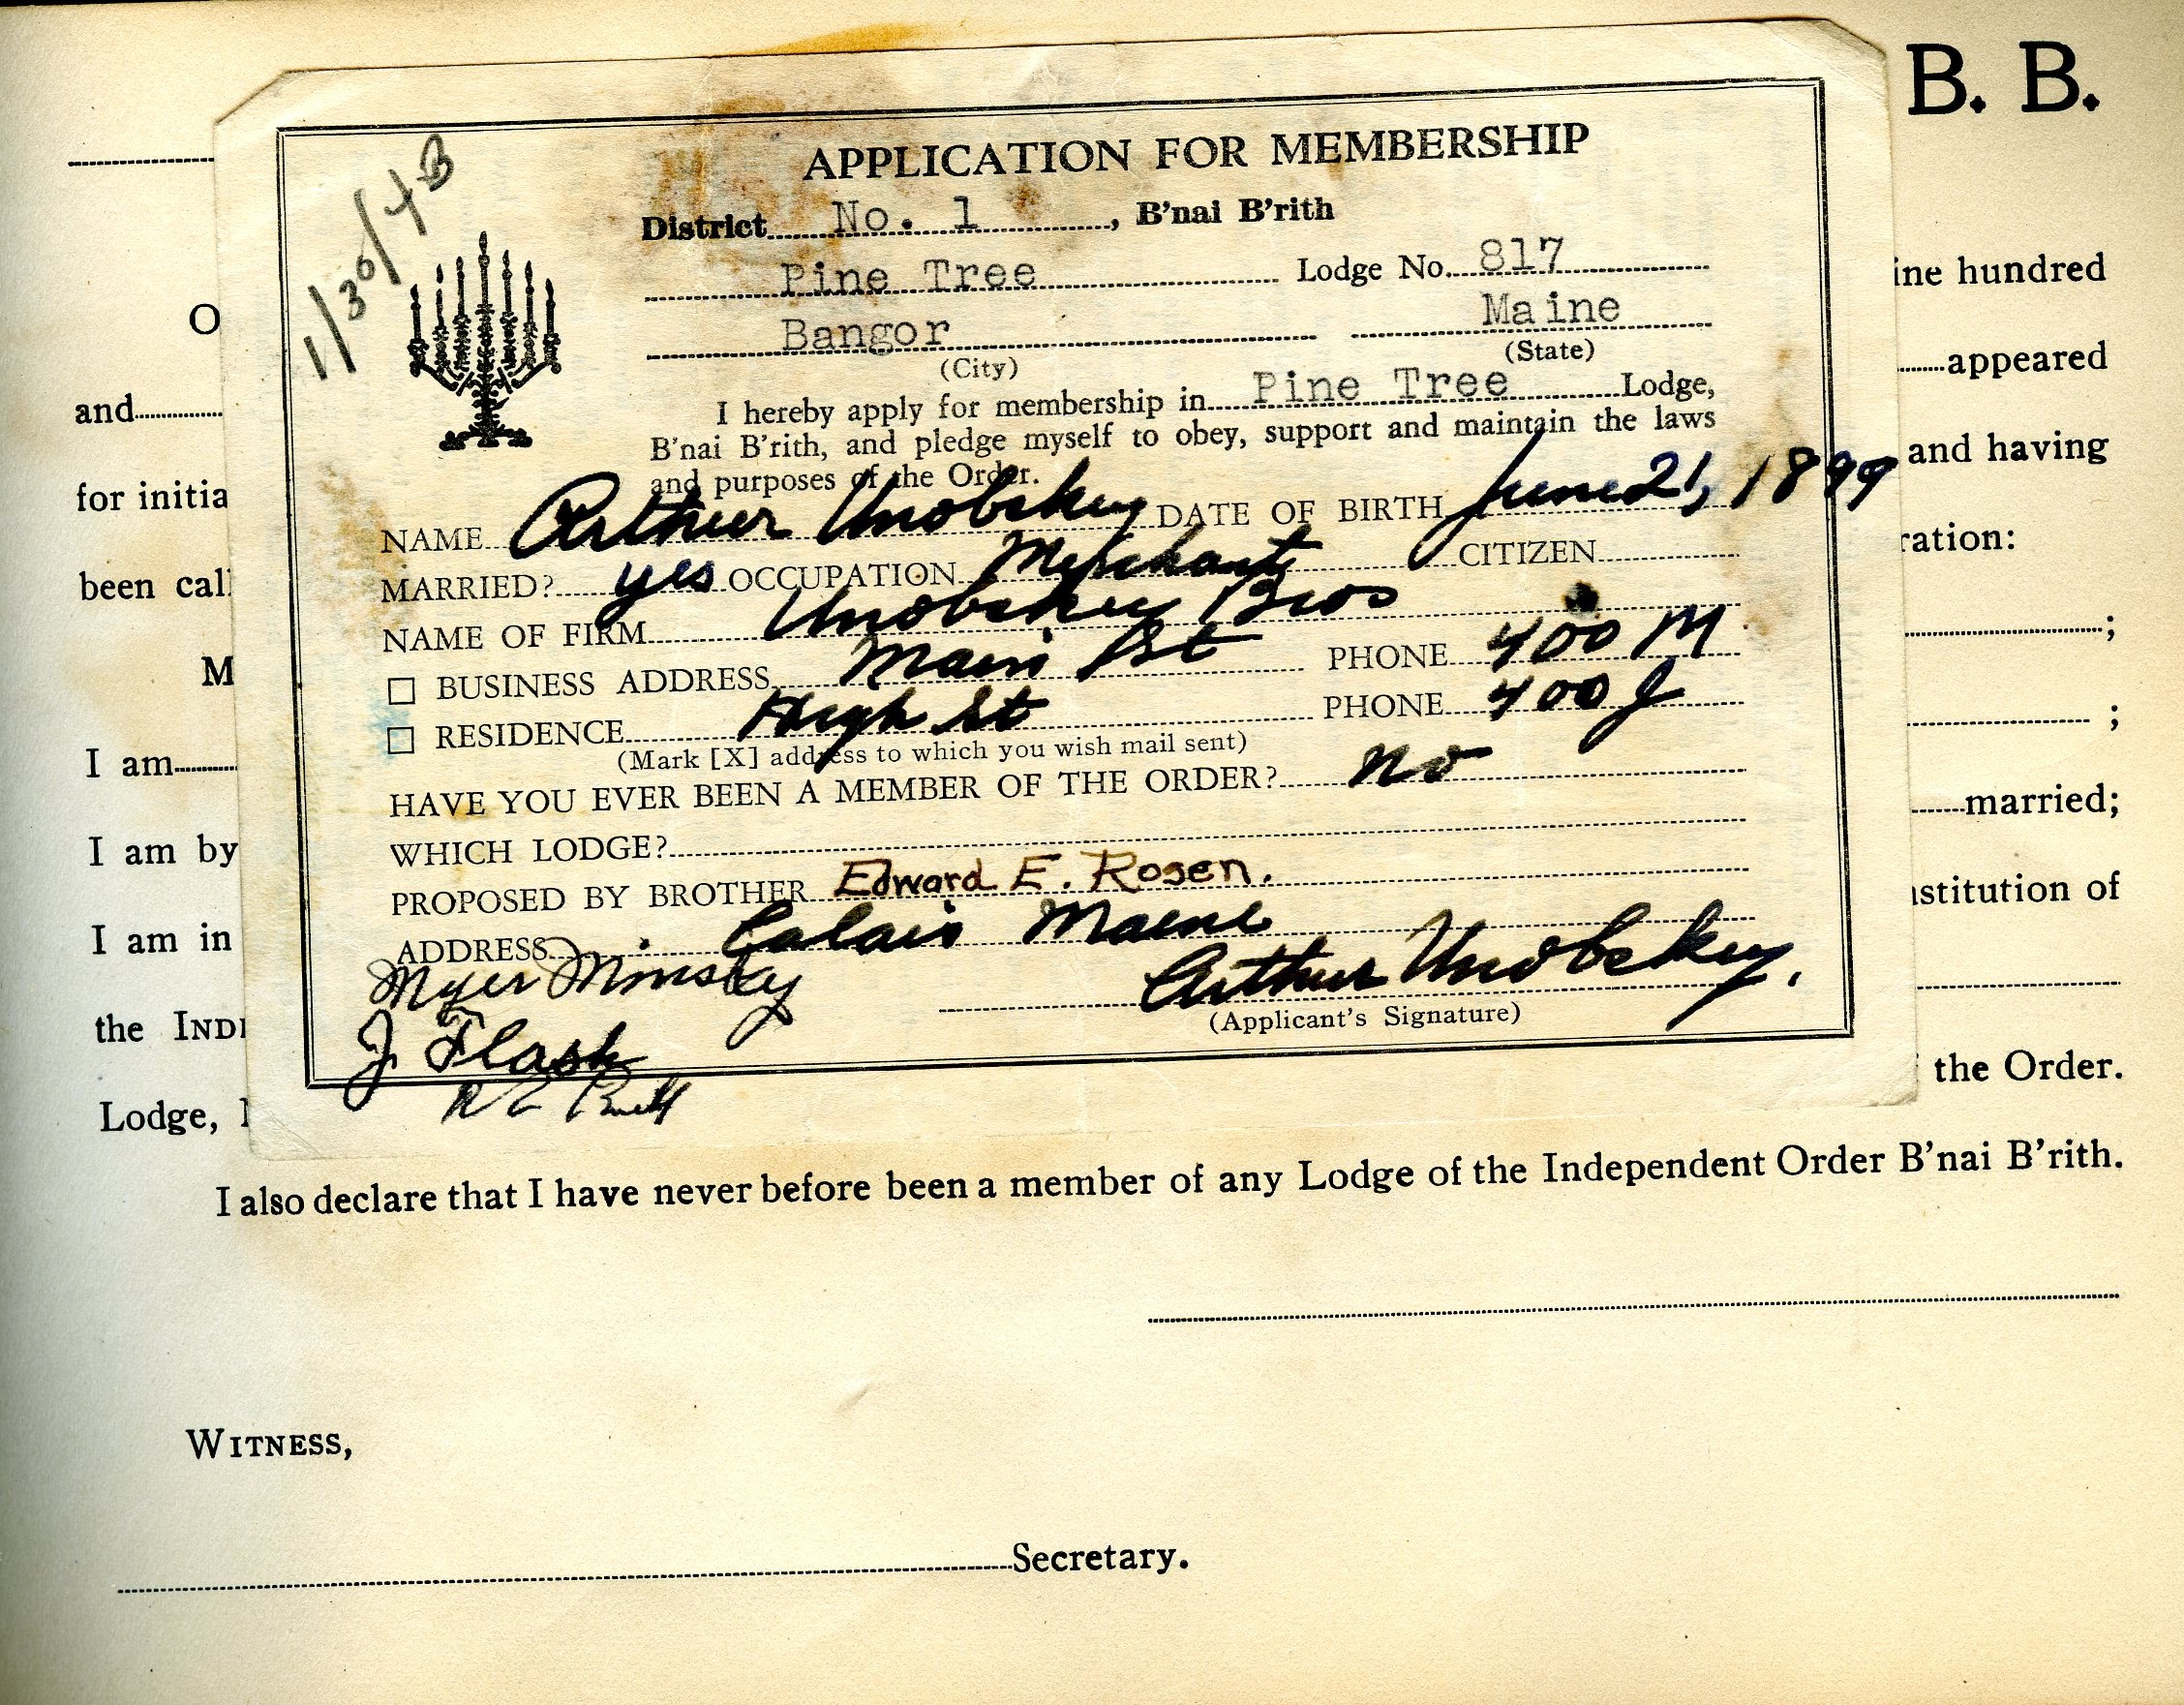 B. B.
1/30/43
APPLICATION FOR MEMBERSHIP
District No. 1, B'nai B'rith
Pine Tree Lodge No. 817
Bangor Maine
(City) (State)
I hereby apply for membership in Pine Tree Lodge,
B'nai B'rith, and pledge myself to obey, support and maintain the laws
and purposes of the Order.
NAME Arthur Unobskey DATE OF BIRTH June 21, 1899
MARRIED? yes OCCUPATION Merchant CITIZEN
NAME OF FIRM Unobskey Bros
BUSINESS ADDRESS Main St PHONE 400 M
RESIDENCE High St PHONE 400 J
(Mark [X] address to which you wish mail sent)
HAVE YOU EVER BEEN A MEMBER OF THE ORDER? no
WHICH LODGE?
PROPOSED BY BROTHER Edward E. Rosen.
ADDRESS Calais Maine
Myer Minsky
Arthur Unobskey.
(Applicant's Signature)
J. Flash
O
and
for initia
been cal
M
I am
I am by
I am in
the INDE
Lodge,
ine hundred
appeared
and having
ration:
;
;
married;
stitution of
the Order.
I also declare that I have never before been a member of any Lodge of the Independent Order B'nai B'rith.
WITNESS,
Secretary.